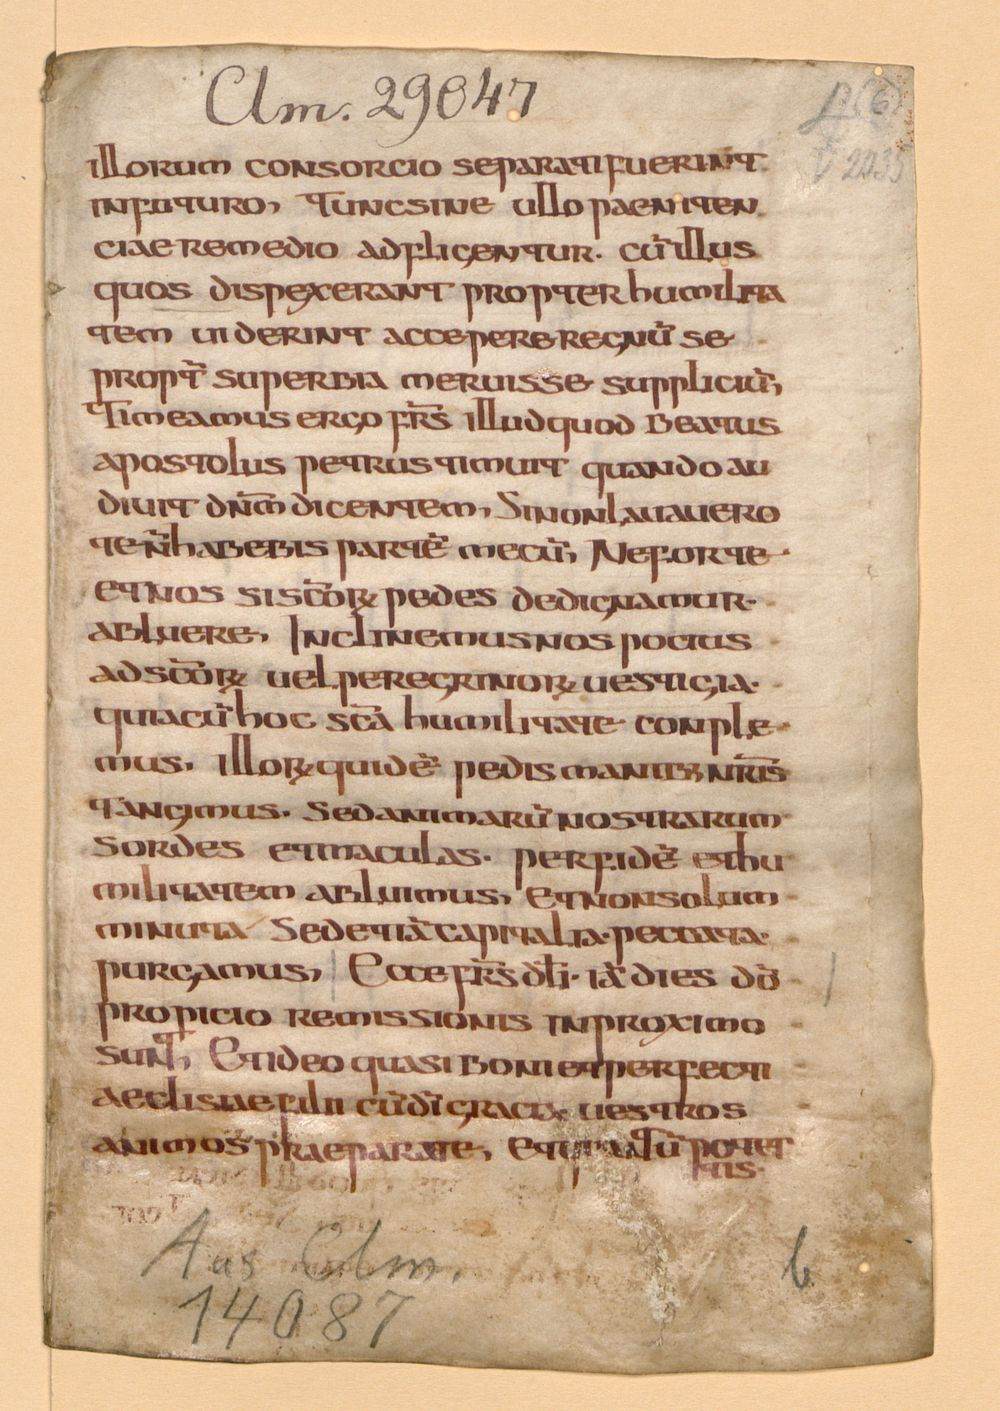 Clm. 29047
A (6)
illorum consorcio separati fuerint
in futuro, Tunc sine ullo paeniten
ciae remedio adfligentur. cū illus
quos dispexerant propter humilita
tem uiderint accepere regnū se
propt̄ superbia meruisse suppliciū,
Timeamus ergo fr̄s illud quod beatus
apostolus petrus timuit quando au
diuit dn̄m dicentem, Si non lauauero
te n̄ habebis partē mecū, Ne forte
et nos s̄c̄orꝝ pedes dedignamur.
abluere, Inclinemus nos pocius
ad sc̄orꝝ uel peregrinorꝝ uestigia.
quia cū hoc sc̄a humilitate conple
mus, illorꝝ quidē pedis manibꝫ nr̄is
tangimus. sed animarū nostrarum
sordes et maculas. per fidē et hu
militatem abluimus, Et non solum
minuta Sed etiā capitalia. peccata.
purgamus, Ecce fr̄s dl̄i. iā dies dō
propicio remissionis in proximo
sunt, Et ideo quasi boni et perfecti
aeclisiae filii cū dī gracia uestros
animos praeparate, Et quantū potet
tis.
Aus Clm.
14087
b